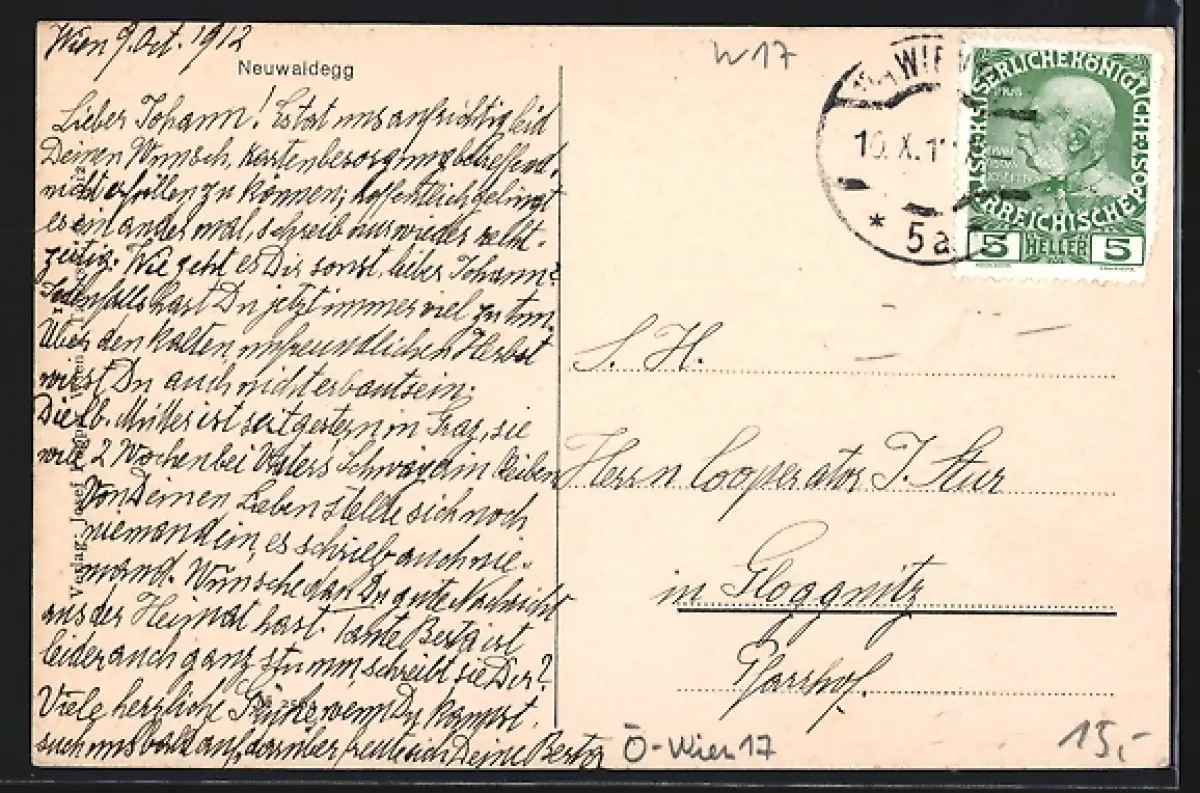 Wien 9. Oct. 1912
Neuwaldegg
Lieber Johann! Es tat uns aufrichtig leid
Deinen Wunsch, Kartenbesorgung betreffend,
nicht erfüllen zu können; hoffentlich gelingt
es ein ander mal, schreib uns wieder recht-
zeitig. Wie geht es Dir sonst, lieber Johann?
Jedenfalls hast Du jetzt immer viel zu tun.
Über den kalten unfreundlichen Herbst
wirst Du auch nicht erbaut sein.
Die lb. Mutter ist seit gestern in Graz, sie
will 2 Wochen bei Vaters Schwägerin bleiben
Von Deinen Lieben stellte sich noch
niemand ein, es schrieb auch nie-
mand. Wünsche dan Du gute Nachricht
aus der Heimat hast. Tante Berta ist
leider auch ganz stumm, schreibt sie Dir?
Viele herzliche Grüße, wenn Du kannst
such uns bald auf, darüber freute sich Deine Berta
Verlag: Josef Wien
W 17
WIEN
10.X.1
* 5a
KAISERLICHE KÖNIGLICHE ÖSTERREICHISCHE POST
5 HELLER 5
S. H.
Herrn Cooperator J. Stur
in Gloggnitz
Pfarrhof.
Ö-Wien 17
15,-